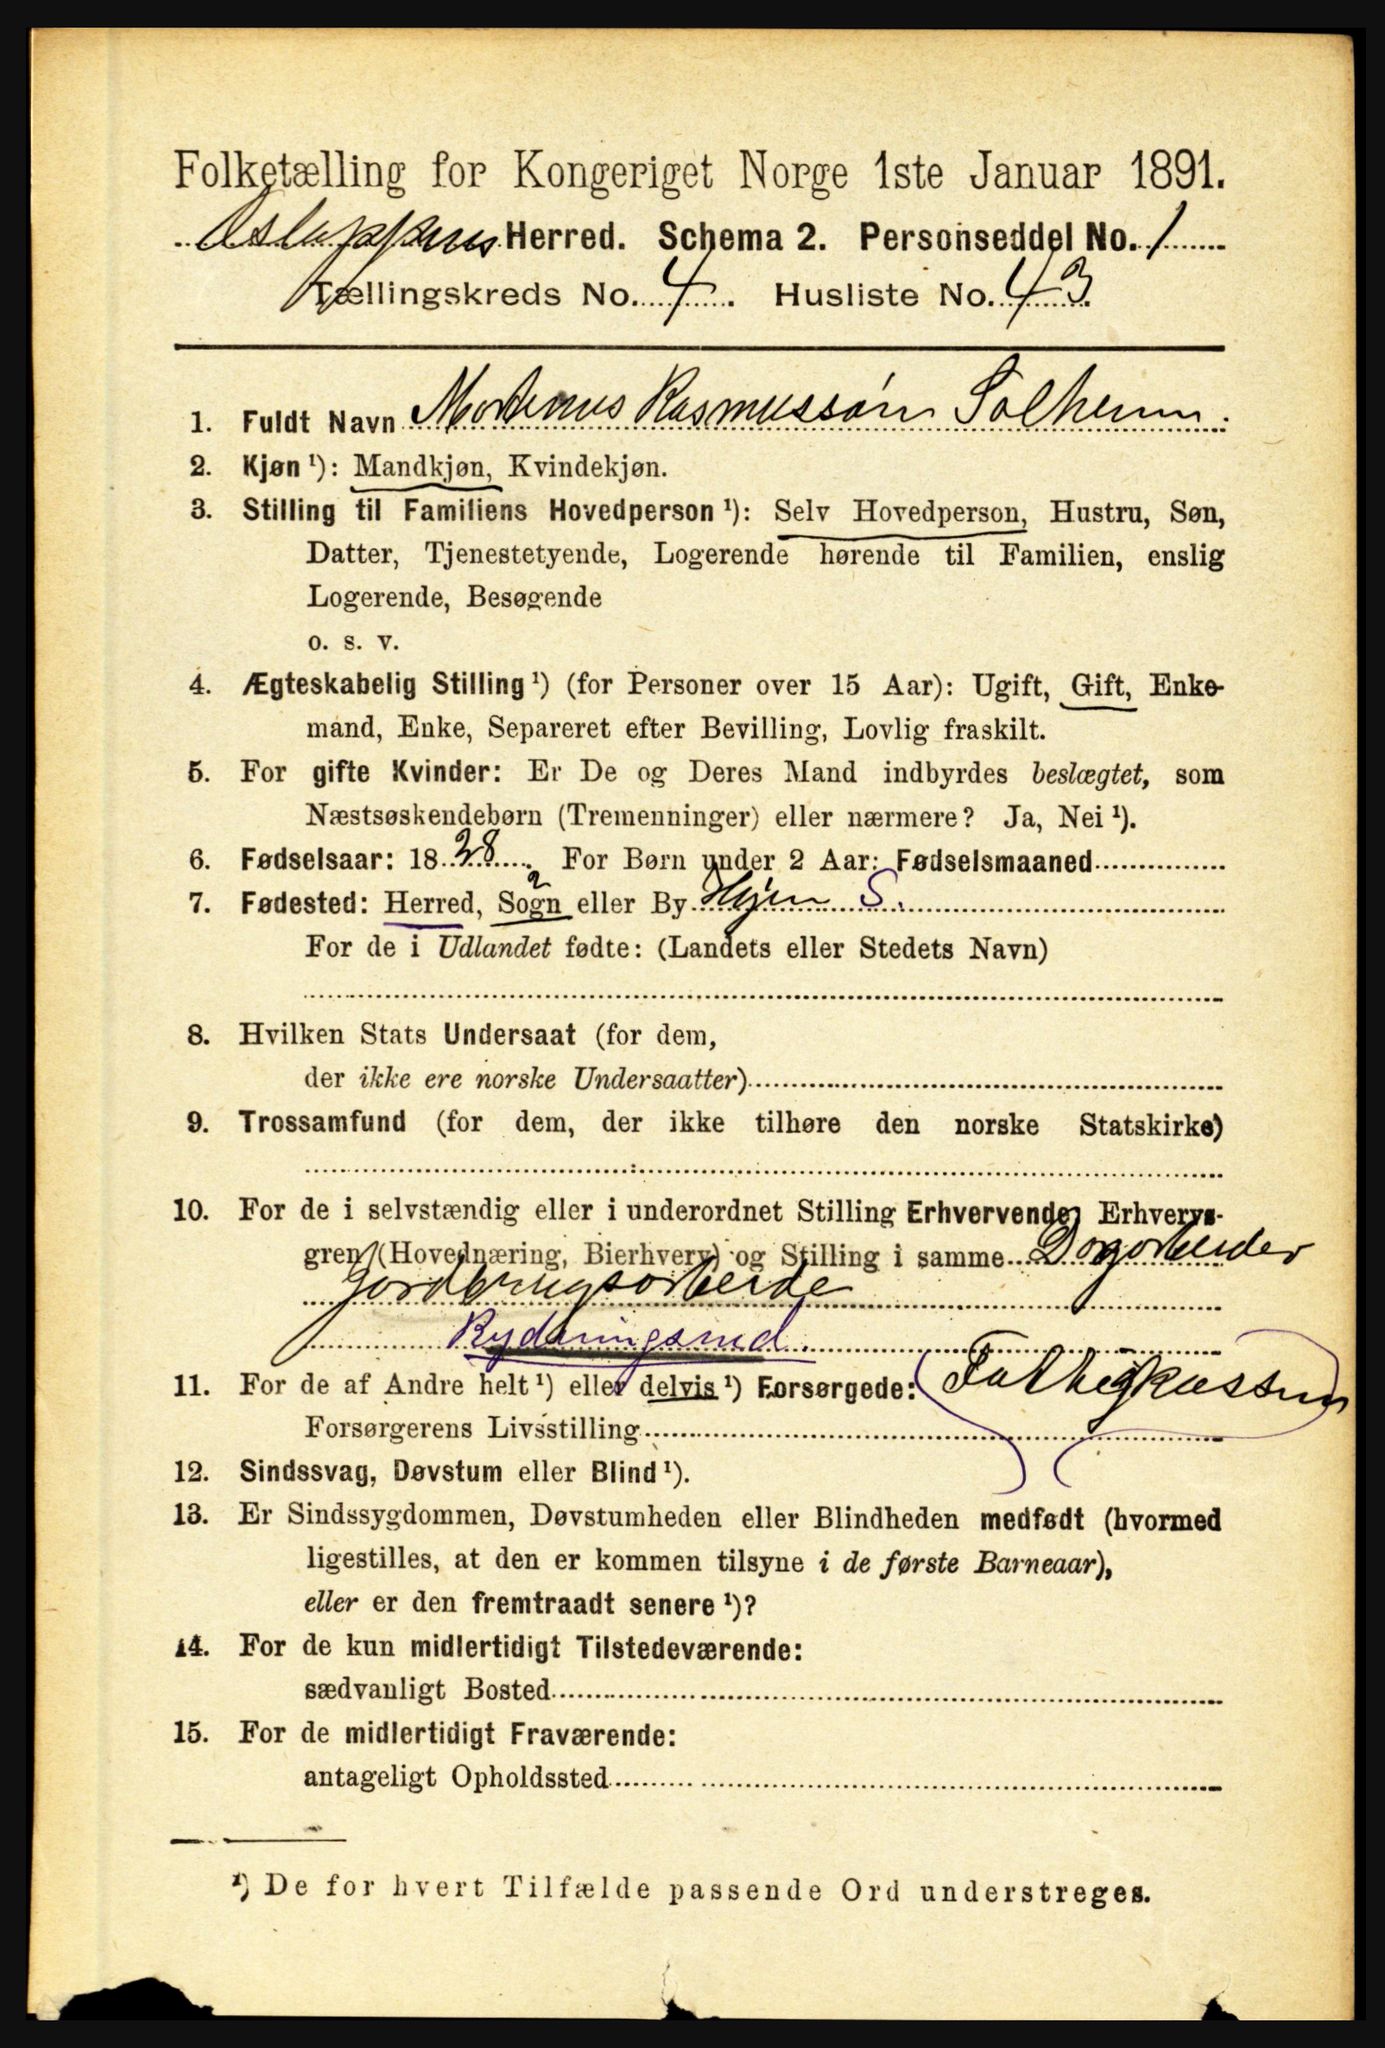 Folketælling for Kongeriget Norge 1ste Januar 1891.
Herred. Schema 2. Personseddel No. 1
Tællingskreds No. 4. Husliste No. 43.
1. Fuldt Navn Mortinus Rasmussøn Solheim.
2. Kjøn ¹): Mandkjøn, Kvindekjøn.
3. Stilling til Familiens Hovedperson ¹): Selv Hovedperson, Hustru, Søn,
Datter, Tjenestetyende, Logerende hørende til Familien, enslig
Logerende, Besøgende
o. s. v.
4. Ægteskabelig Stilling ¹) (for Personer over 15 Aar): Ugift, Gift, Enke-
mand, Enke, Separeret efter Bevilling, Lovlig fraskilt.
5. For gifte Kvinder: Er De og Deres Mand indbyrdes beslægtet, som
Næstsøskendebørn (Tremenninger) eller nærmere? Ja, Nei ¹).
6. Fødselsaar: 1828. For Børn under 2 Aar: Fødselsmaaned
7. Fødested: Herred, Sogn eller By Hyen S.
For de i Udlandet fødte: (Landets eller Stedets Navn)
8. Hvilken Stats Undersaat (for dem,
der ikke ere norske Undersaatter)
9. Trossamfund (for dem, der ikke tilhøre den norske Statskirke)
10. For de i selvstændig eller i underordnet Stilling Erhvervende: Erhvervs-
gren (Hovednæring, Bierhverv) og Stilling i samme Dagarbeider
Jordbrugsarbeide
Rydningsmd.
11. For de af Andre helt ¹) eller delvis ¹) Forsørgede: Fattigkassen
Forsørgerens Livsstilling
12. Sindssvag, Døvstum eller Blind ¹).
13. Er Sindssygdommen, Døvstumheden eller Blindheden medfødt (hvormed
ligestilles, at den er kommen tilsyne i de første Barneaar),
eller er den fremtraadt senere ¹)?
14. For de kun midlertidigt Tilstedeværende:
sædvanligt Bosted
15. For de midlertidigt Fraværende:
antageligt Opholdssted
¹) De for hvert Tilfælde passende Ord understreges.